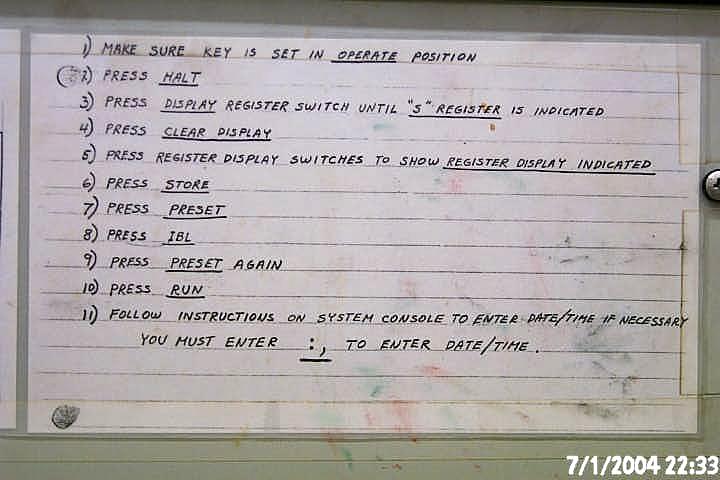 1) MAKE SURE KEY IS SET IN OPERATE POSITION
2) PRESS HALT
3) PRESS DISPLAY REGISTER SWITCH UNTIL "S" REGISTER IS INDICATED
4) PRESS CLEAR DISPLAY
5) PRESS REGISTER DISPLAY SWITCHES TO SHOW REGISTER DISPLAY INDICATED
6) PRESS STORE
7) PRESS PRESET
8) PRESS IBL
9) PRESS PRESET AGAIN
10) PRESS RUN
11) FOLLOW INSTRUCTIONS ON SYSTEM CONSOLE TO ENTER DATE/TIME IF NECESSARY
YOU MUST ENTER :, TO ENTER DATE/TIME.
7/1/2004 22:33